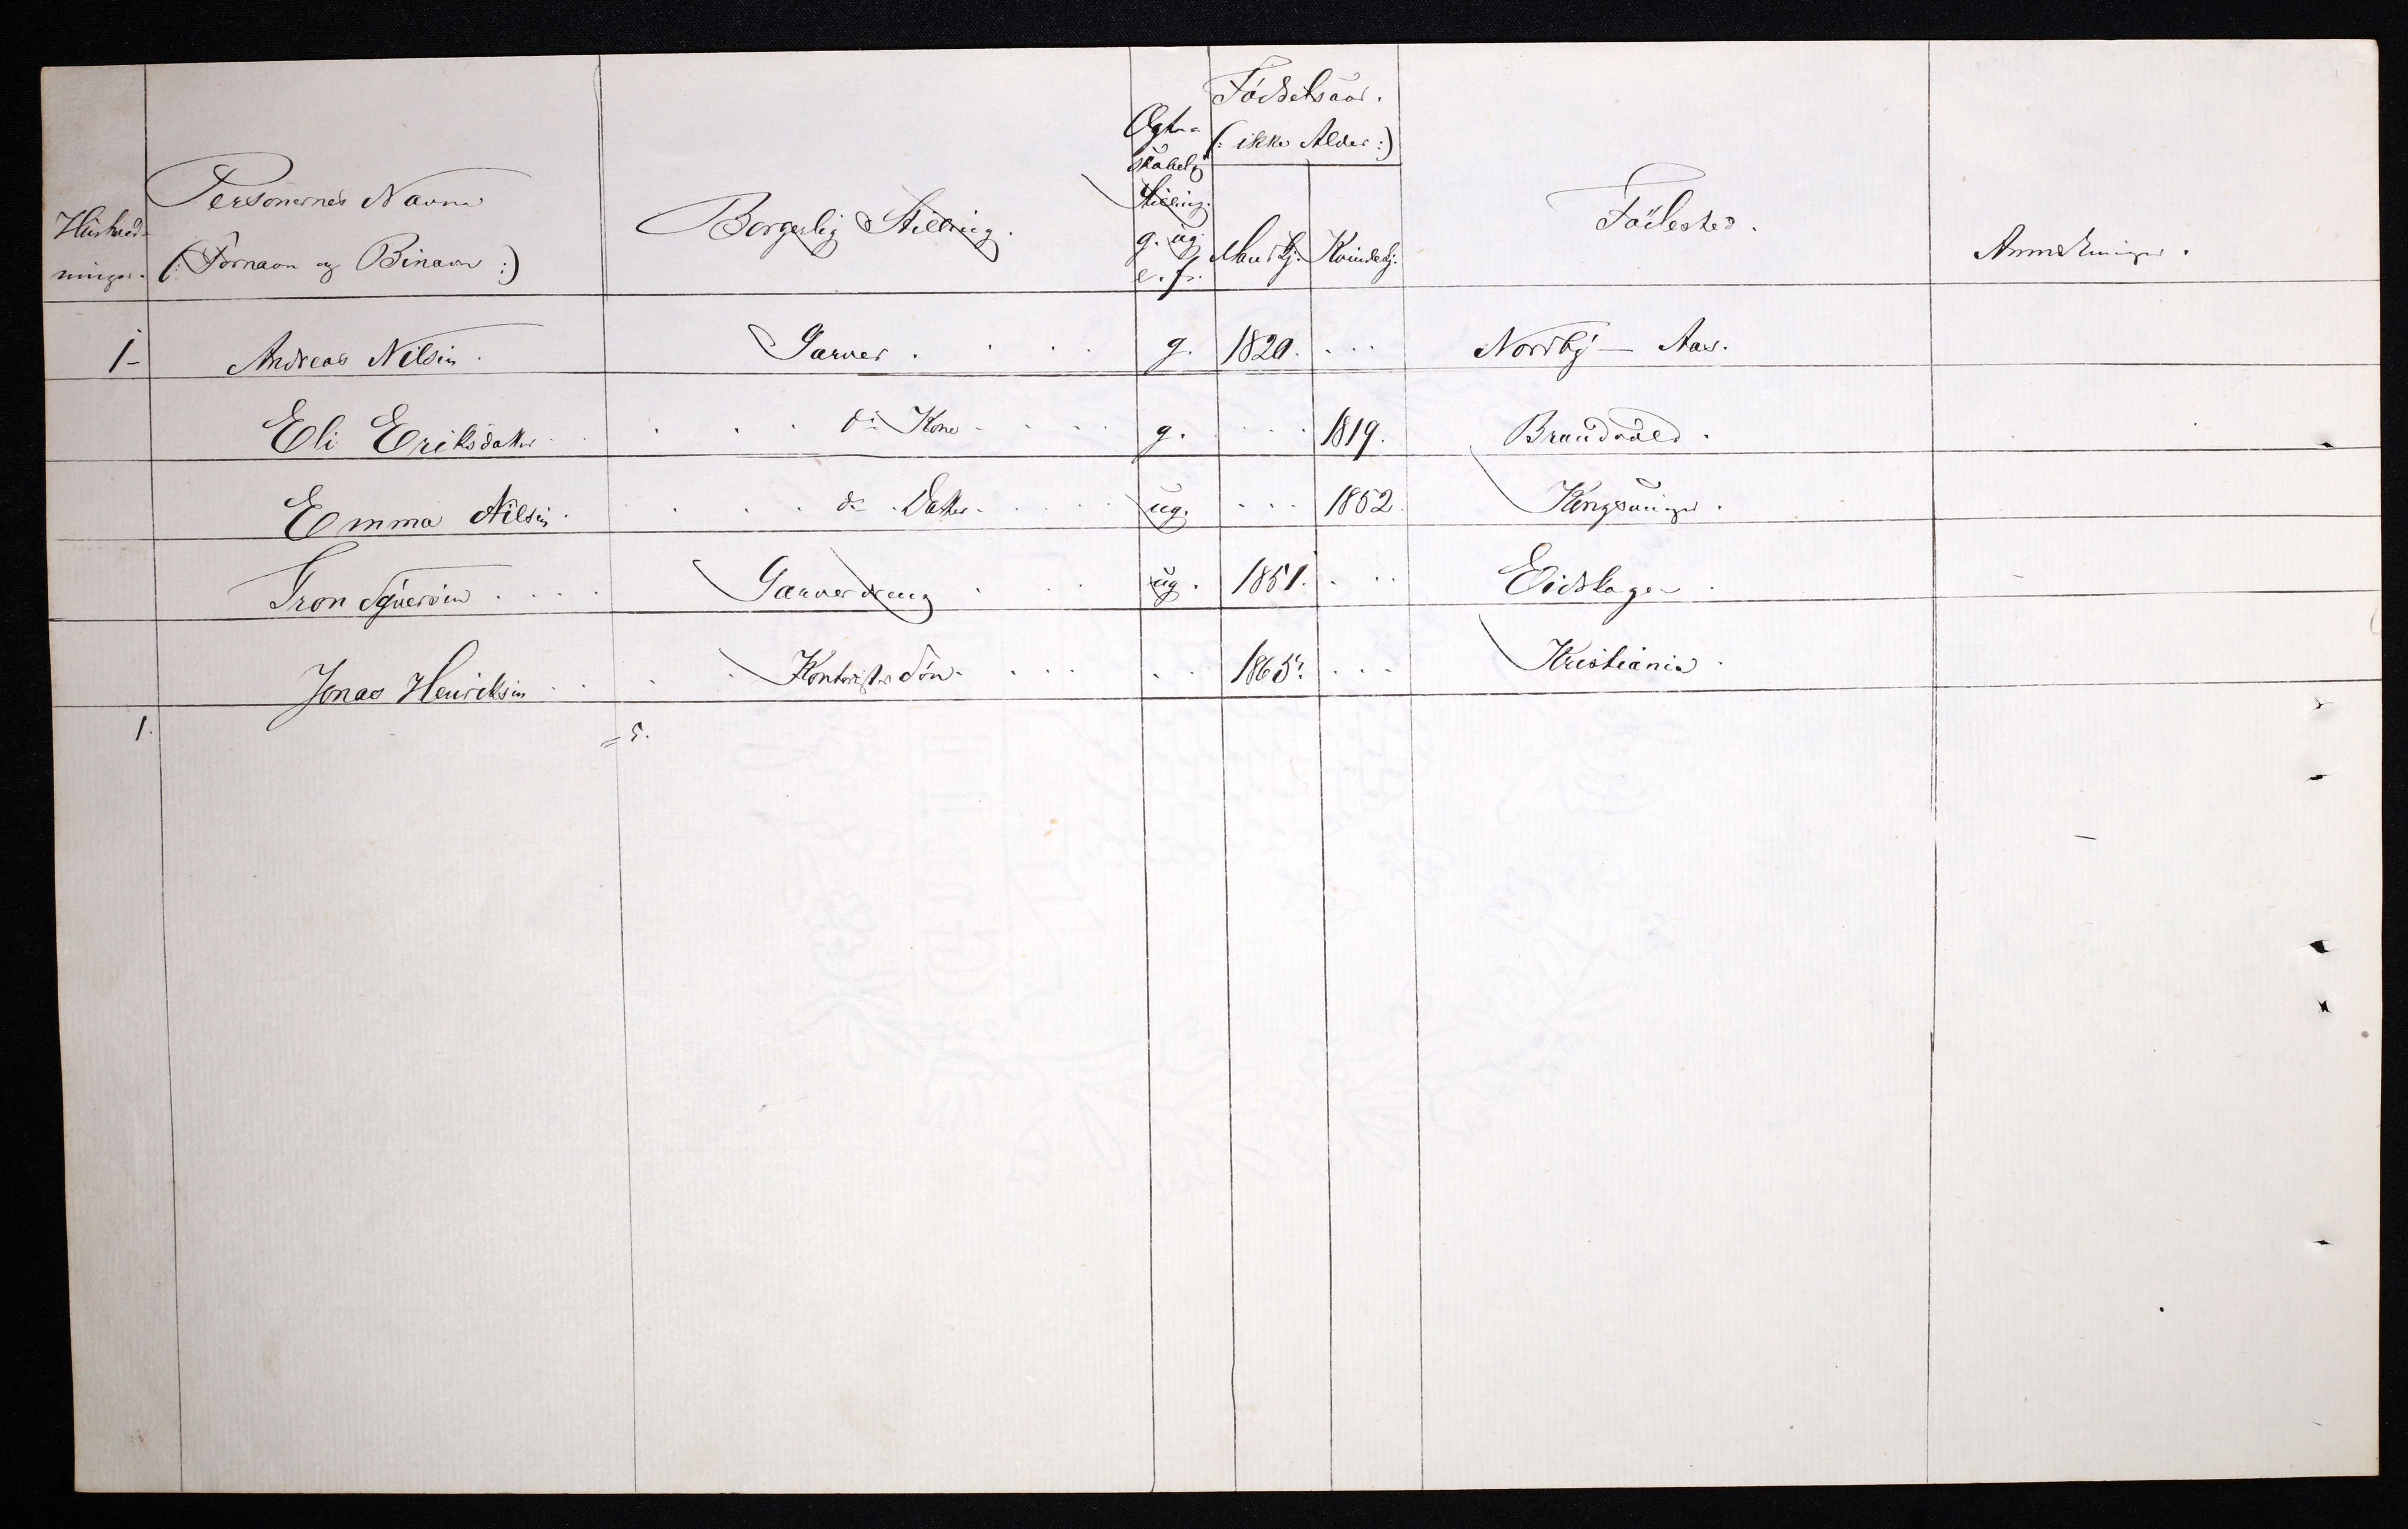 Husholdninger. Personernes Navne (: Fornavn og Binavn :) Borgerlig Stilling. Ægteskabelig Stilling. g. ug. e. f. Fødselsaar. (: ikke Alder :) Mandkj. Kvindekj. Fødested. Anmerkninger.
1- Andreas Nilsen. Garver. . . . g. 1820. . . . Nordby — Aas.
Eli Eriksdatter . . . . ds Kone . . . . g. . . . 1819. Brandvold.
Emma Nilsen. . . . . ds Datter. . . . ug. . . . 1852. Kongsvinger.
Tron . . . . Garverdreng . . . ug. 1851. . . . Eidskogen.
Jonas Henriksen . . . . Kontorists Søn. . . . . . 1865. . . . Kristiania.
1. = 5.